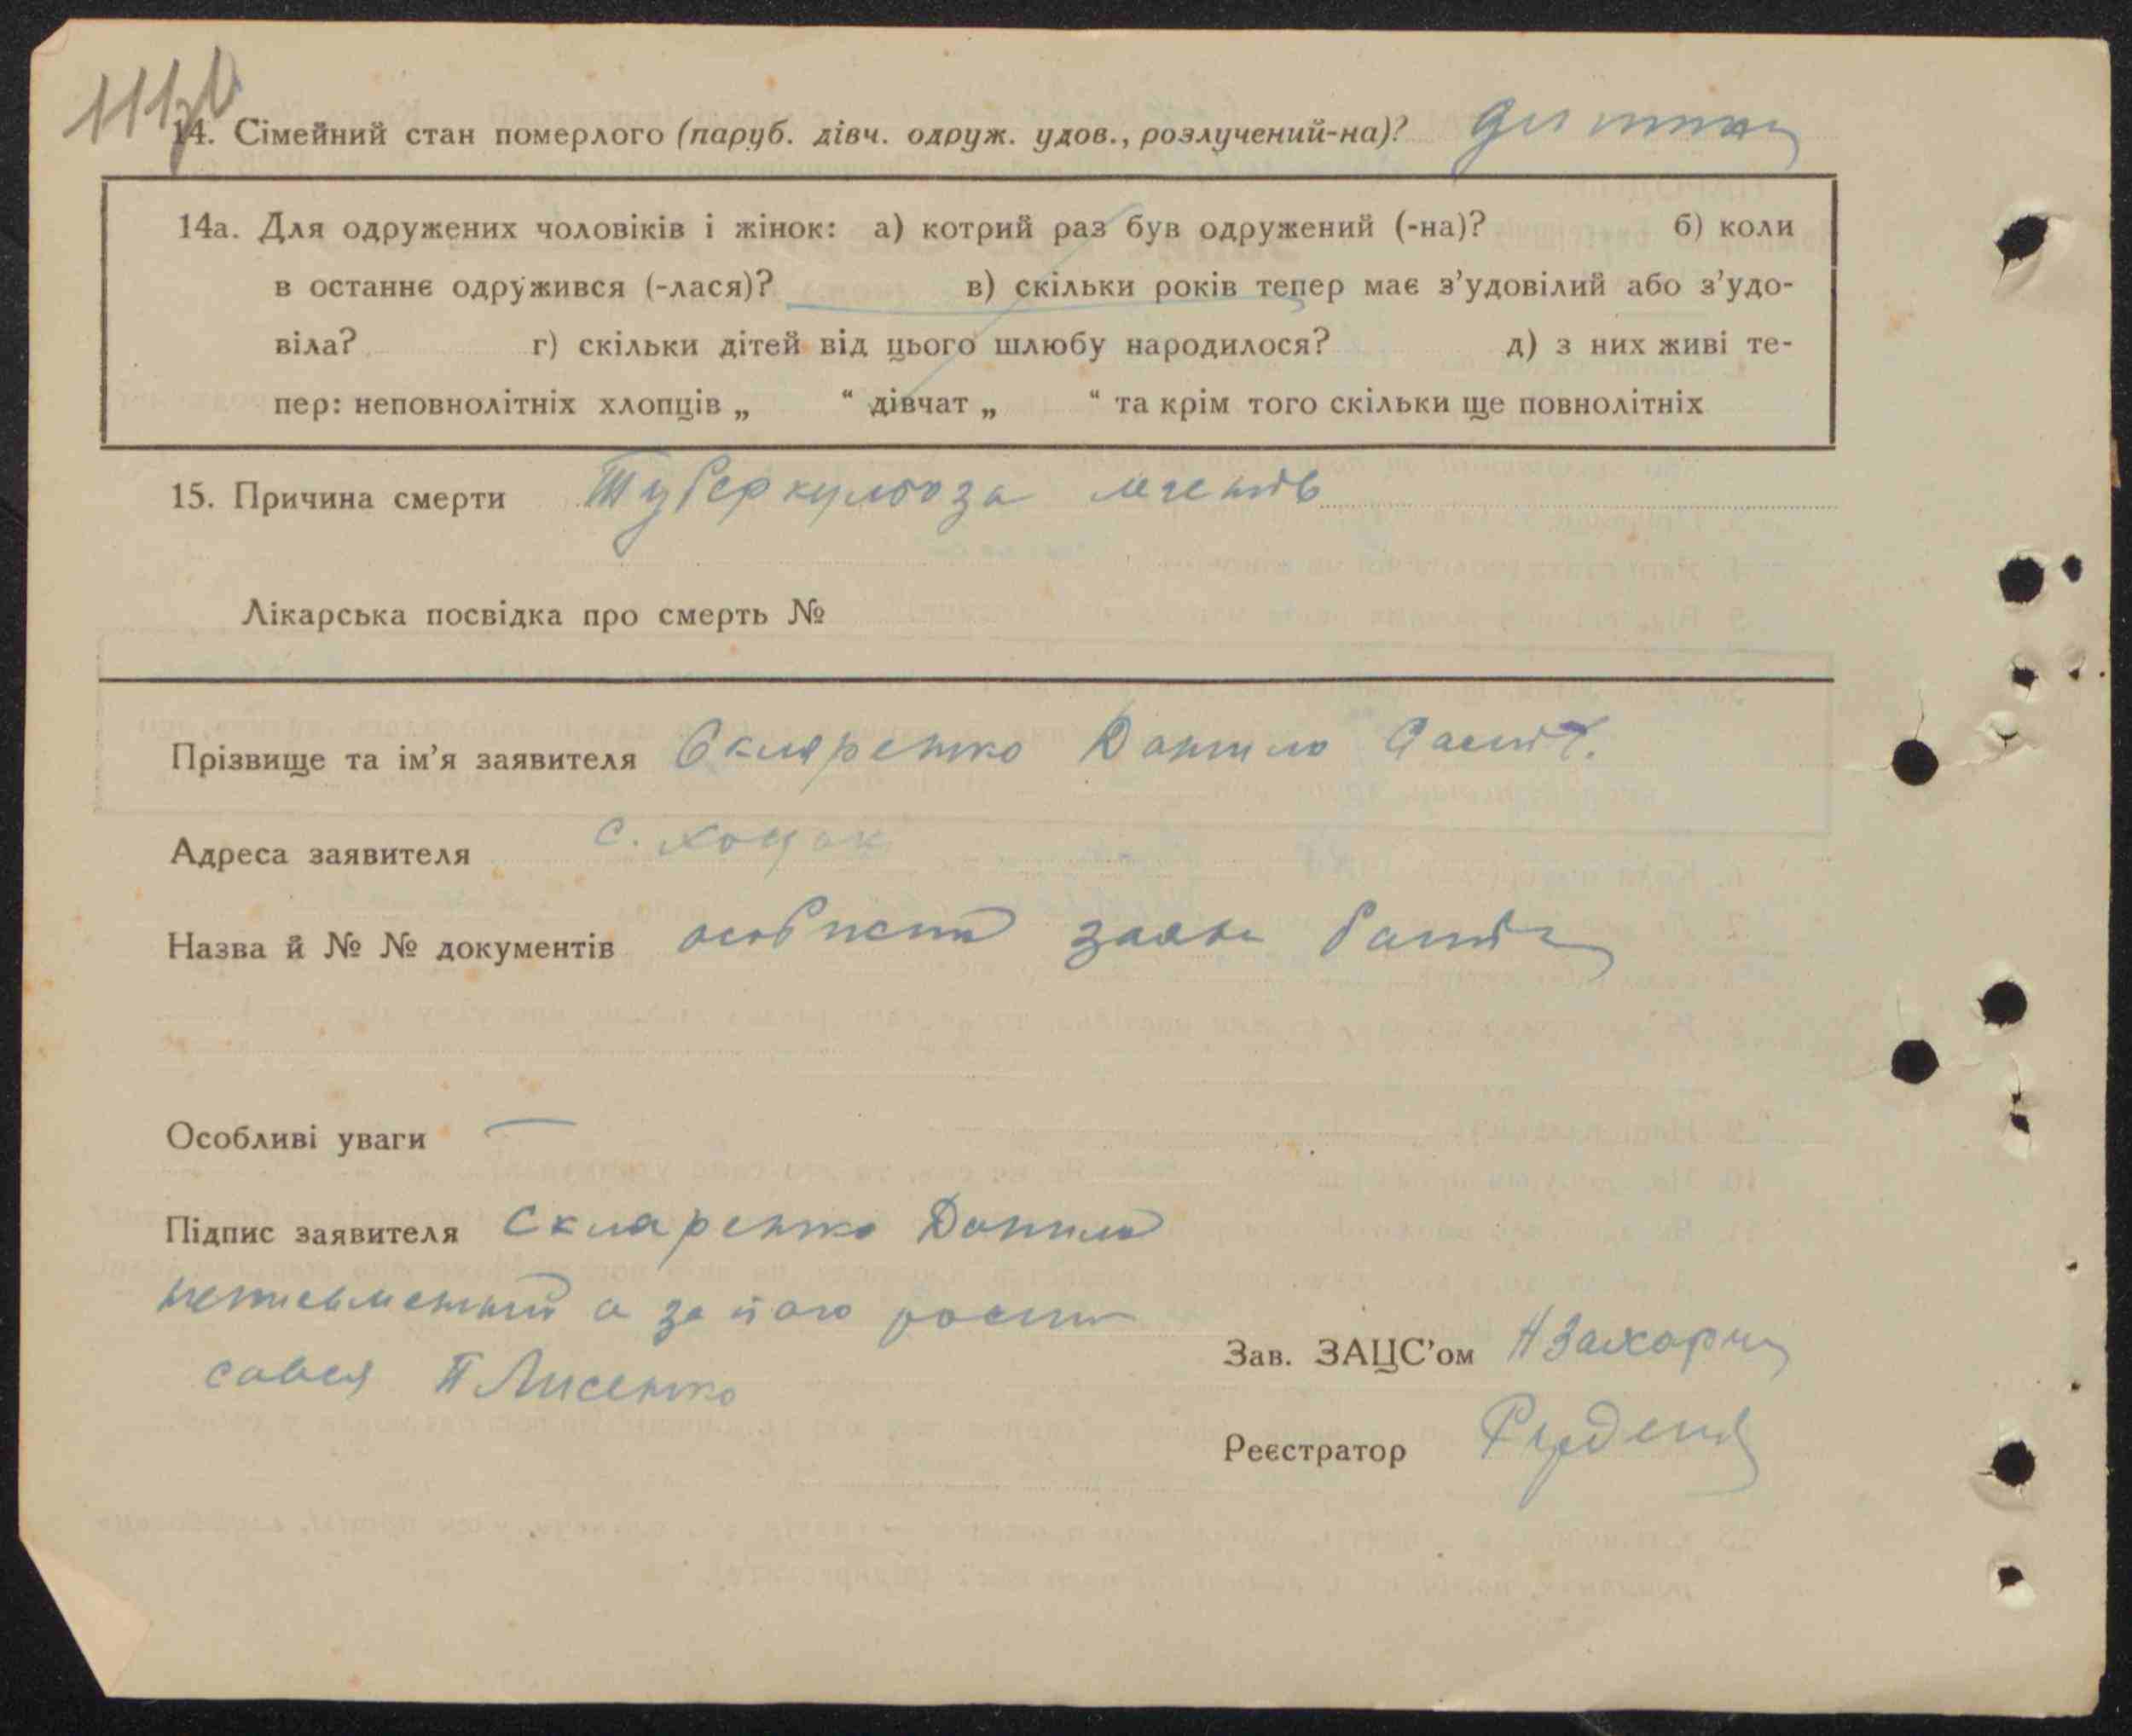 14. Сімейний стан померлого (паруб. дівч. одруж. удов., розлучений-на)? дитина
14а. Для одружених чоловіків і жінок: а) котрий раз був одружений (-на)? б) коли
в останнє одружився (-лася)? в) скільки років тепер має з’удовілий або з’удо-
віла? г) скільки дітей від цього шлюбу народилося? д) з них живі те-
пер: неповнолітніх хлопців „ “ дівчат „ “ та крім того скільки ще повнолітніх
15. Причина смерти Туберкульоза
Лікарська посвідка про смерть №
Прізвище та ім’я заявителя Скляренко Данило
Адреса заявителя с.
Назва й № № документів особиста заява батька
Особливі уваги —
Підпис заявителя Скляренко Данило
неписьменний а за його роспи
сався П Лисенко
Зав. ЗАЦС’ом
Реєстратор